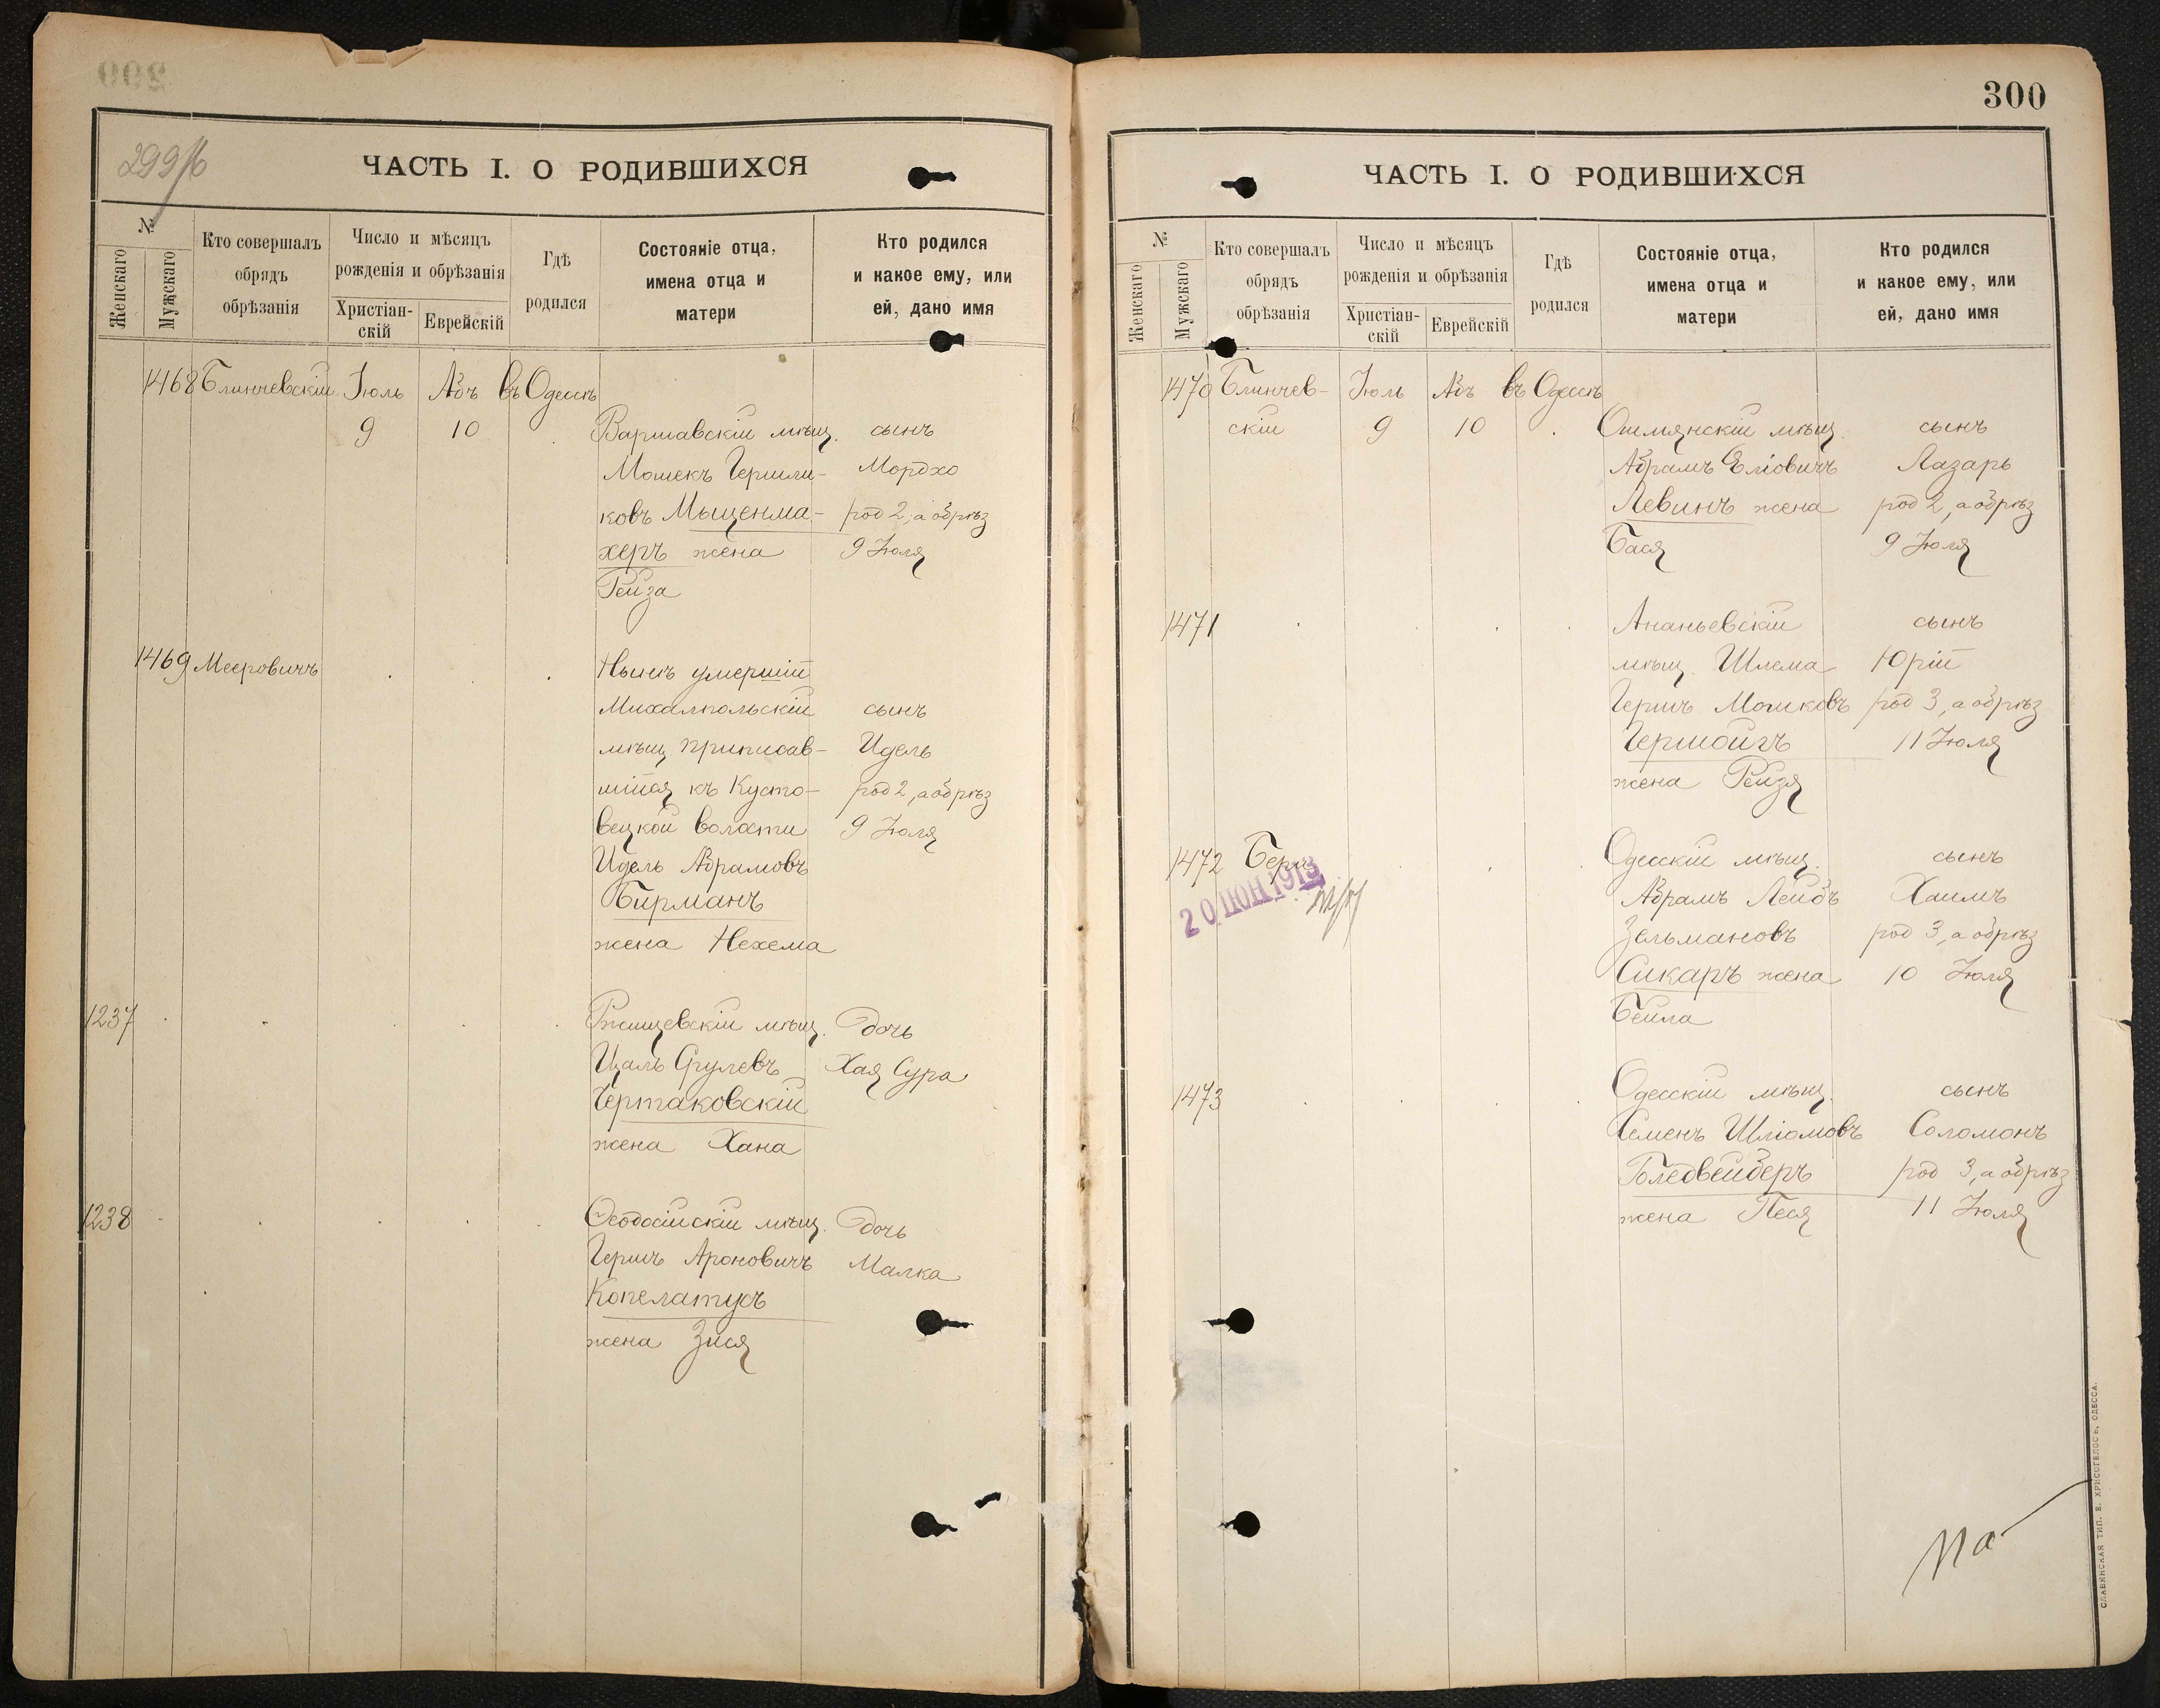 299/б
ЧАСТЬ I. О РОДИВШИХСЯ
№
Женскаго
Мужскаго
Кто совершалъ
обрядъ
обрѣзанія
Число и мѣсяцъ
рожденія и обрѣзанія
Христіан-
скій
Еврейскій
Гдѣ
родился
Состояніе отца,
имена отца и
матери
Кто родился
и какое ему, или
ей, дано имя
1468 Блинчевскій Іюль Абъ въ Одессѣ
9 10
Варшавскій мѣщ. сынъ
Мошекъ Гершли- Мордхо
ковъ Мыценма- род 2, а обрѣз
херъ жена 9 Іюля
Рейза
1469 Мееровичъ Нынѣ умершій
Михалпольскій сынъ
мѣщ. приписав- Идель
шійся къ Кусто- род 2, а обрѣз
вецкой волости 9 Іюля
Идель Абрамовъ
Бирманъ
жена Нехема
1237 Ржищевскій мѣщ. дочь
Цаль Срулевъ Хая Сура
Чертаковскій
жена Хана
1238 Ѳеодосійскій мѣщ. дочь
Гершъ Ароновичъ Малка
Копелатусъ
жена Зися
300
ЧАСТЬ I. О РОДИВШИХСЯ
№
Женскаго
Мужскаго
Кто совершалъ
обрядъ
обрѣзанія
Число и мѣсяцъ
рожденія и обрѣзанія
Христіан-
скій
Еврейскій
Гдѣ
родился
Состояніе отца,
имена отца и
матери
Кто родился
и какое ему, или
ей, дано имя
1470 Блинчев- Іюль Абъ въ Одессѣ
скій 9 10 Ошмянскій мѣщ. сынъ
Абрамъ Еліовичъ Лазарь
Левинъ жена род 2, а обрѣз
Бася 9 Іюля
1471 Ананьевскій сынъ
мѣщ. Шлема Юрій
Гершъ Мошковъ род 3, а обрѣз
Гершойгъ 11 Іюля
жена Рейзя
1472 Одесскій мѣщ. сынъ
20 ІЮН 1913
Абрамъ Лейбъ Хаимъ
Зельмановъ род 3, а обрѣз
Сикаръ жена 10 Іюля
Бейла
1473 Одесскій мѣщ. сынъ
Семенъ Шліомовъ Соломонъ
Голедвейберъ род 3, а обрѣз
жена Песя 11 Іюля
СЛАВЯНСКАЯ ТИП. Е. ХРИСОГЕЛОСЪ, ОДЕССА.